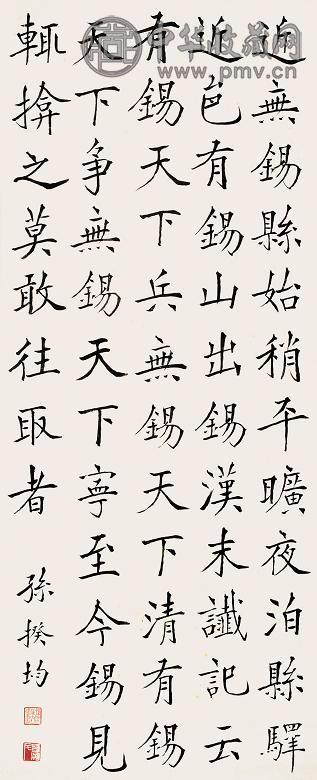 中华收藏网
www.pmv.cn
近無錫縣始稍平曠夜泊縣驛
近邑有錫山出錫漢末讖記云
有錫天下兵無錫天下清有錫
天下争無錫天下寧至今錫見
輒揜之莫敢往取者
孫揆均